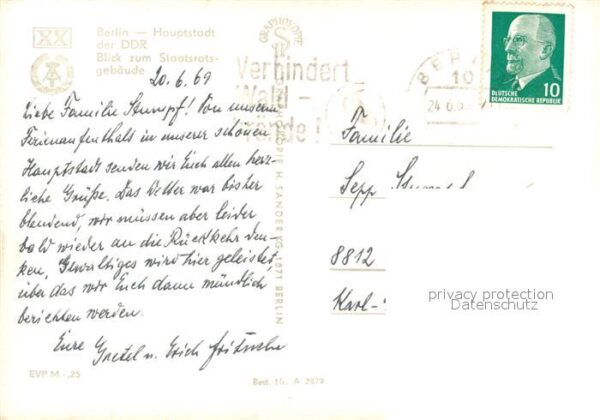 XX
Berlin – Hauptstadt
der DDR
Blick zum Staatsrats-
gebäude
20.6.69
Liebe Familie Stumpf! Von unserem
Ferienaufenthalt in unserer schönen
Hauptstadt senden wir Euch allen herz-
liche Grüße. Das Wetter war bisher
blendend, wir müssen aber leider
bald wieder an die Rückkehr den-
ken. Gewaltiges wird hier geleistet,
über das wir Euch dann mündlich
berichten werden.
Eure Gretel u. Erich Fritzsche
EVP M -,25
Best. Nr. A 2879
GRAPHOKOPIE H. SANDER KG, 1071 BERLIN
GRAPHOKOPF
Verhindert
Wald-
BER
10
24.6.
DEUTSCHE
DEMOKRATISCHE REPUBLIK
10
Familie
Sepp
8812
Karl-
privacy protection
Datenschutz